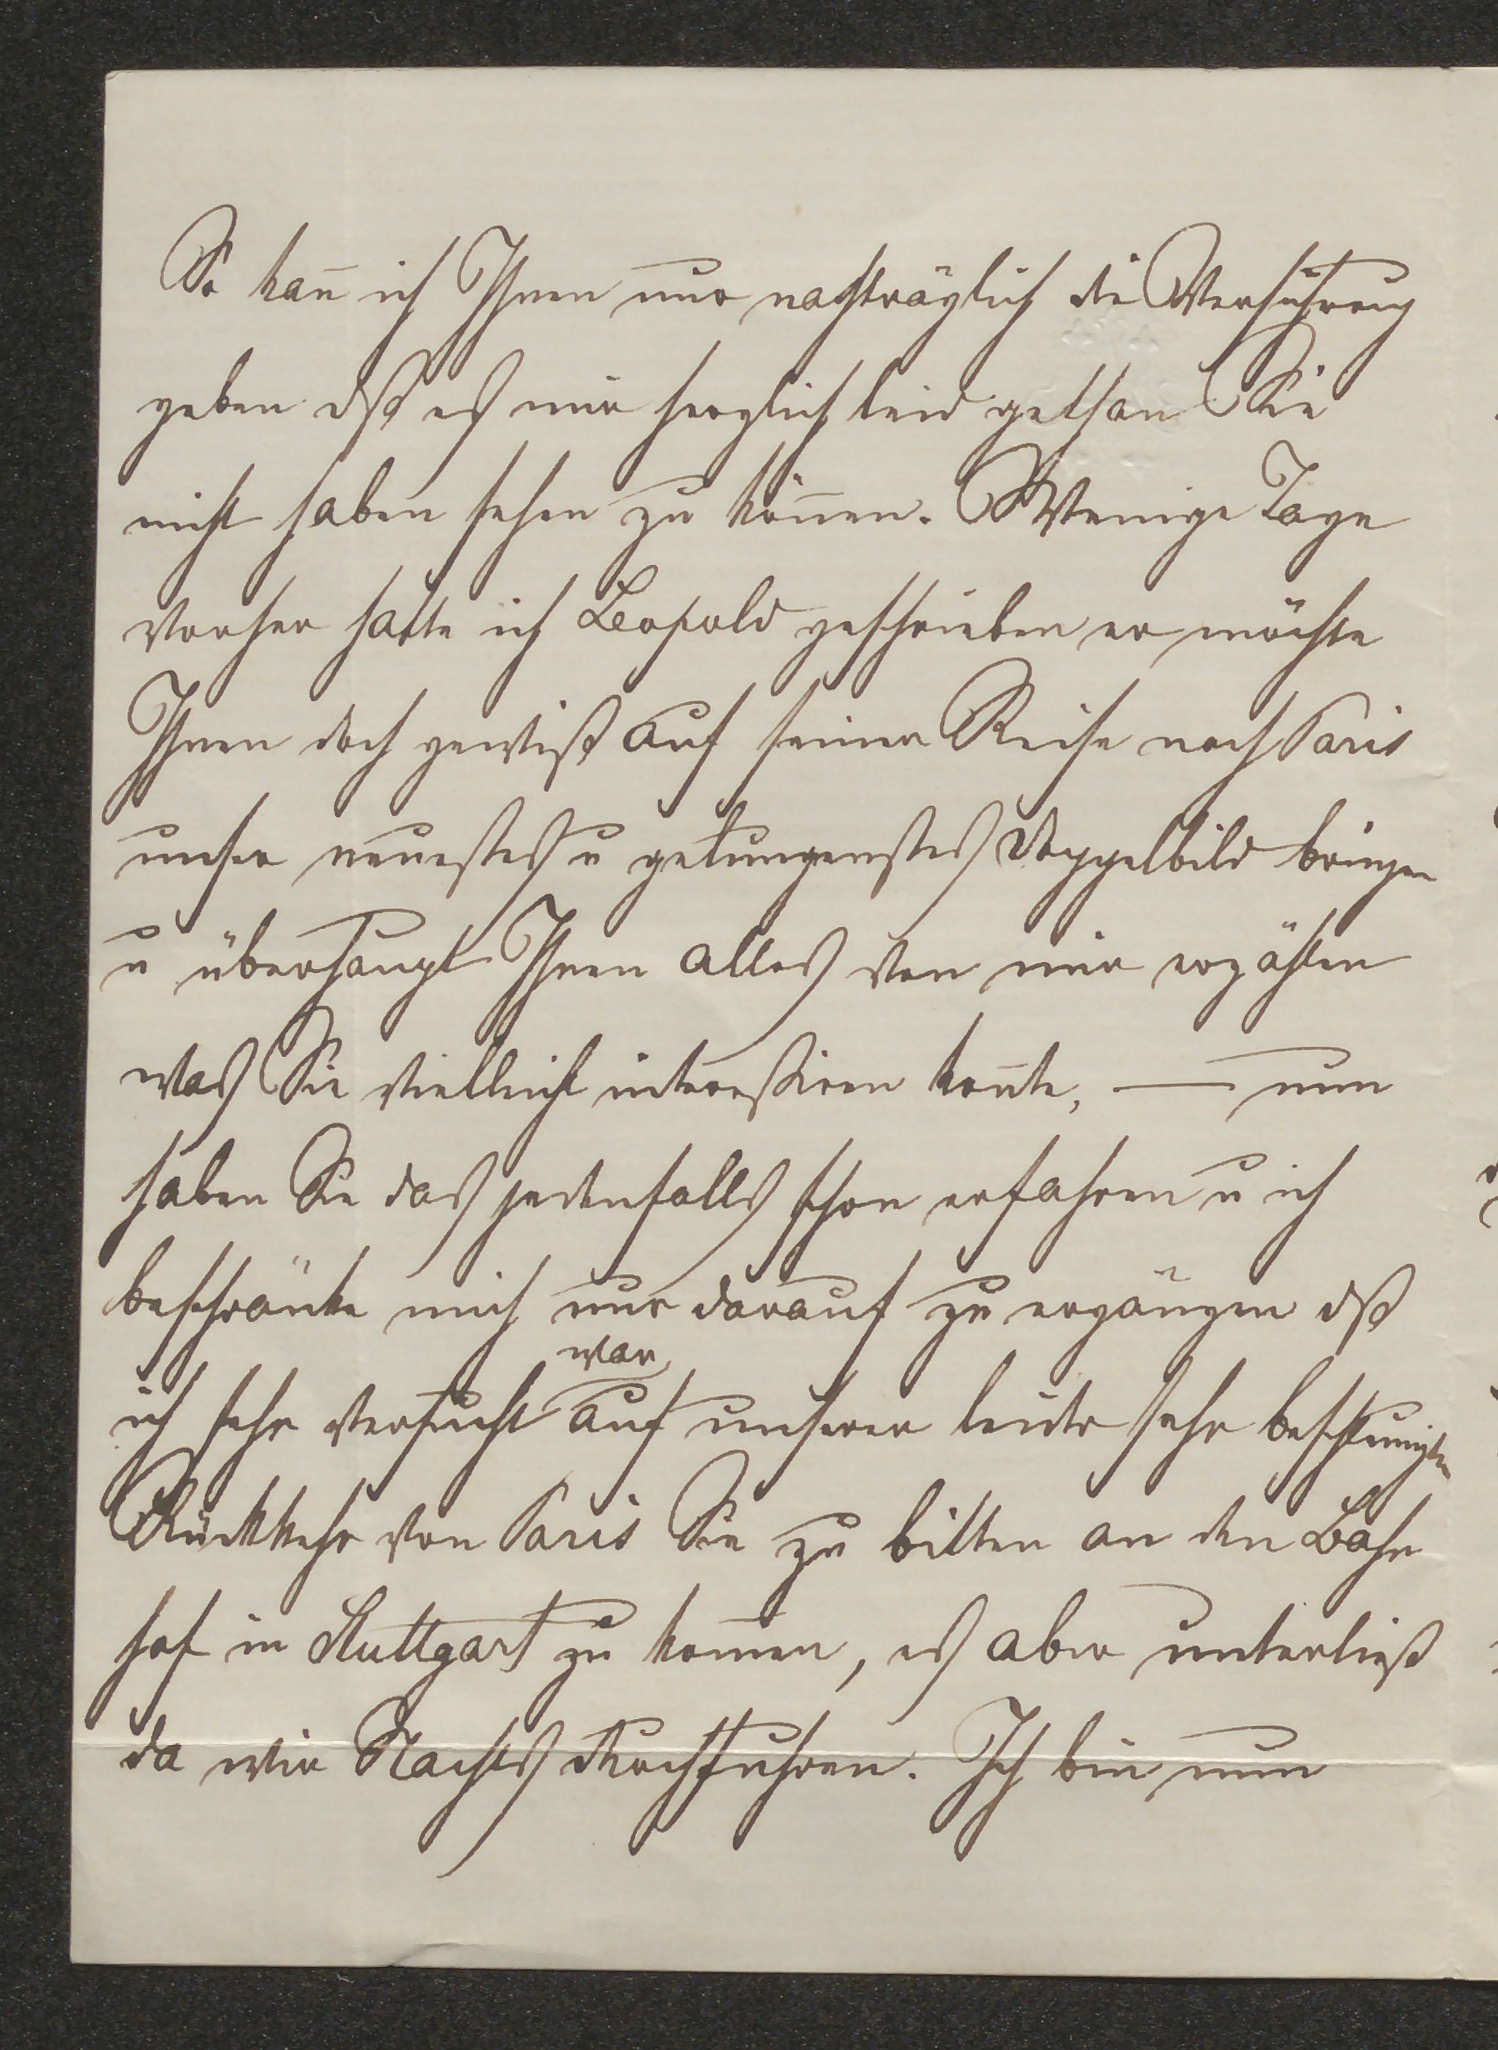 So kan̄ ich Ihnen nur nachträglich die Versichrung
geben dß es mir herzlich leid gethan Sie
nicht haben sehen zu kön̄en. Wenige Tage
vorher hatte ich Leopold geschrieben er möchte
Ihnen doch gewiß auf seiner Reise nach Paris
unser neuestes u gelungenstes Doppelbild bringen
u überhaupt Ihnen alles von mir erzählen
was Sie vielleicht interessiren kon̄te, — nun
haben Sie das jedenfalls schon erfahren u ich
beschränke mich nur darauf zu ergänzen dß
war
ich sehr versucht auf unserer leider sehr beschleunigten
Rückkehr von Paris Sie zu bitten an den Bahn
hof in Stuttgart zu kom̄en, es aber unterließ
da wir Nachts durchfuhren. Ich bin nun